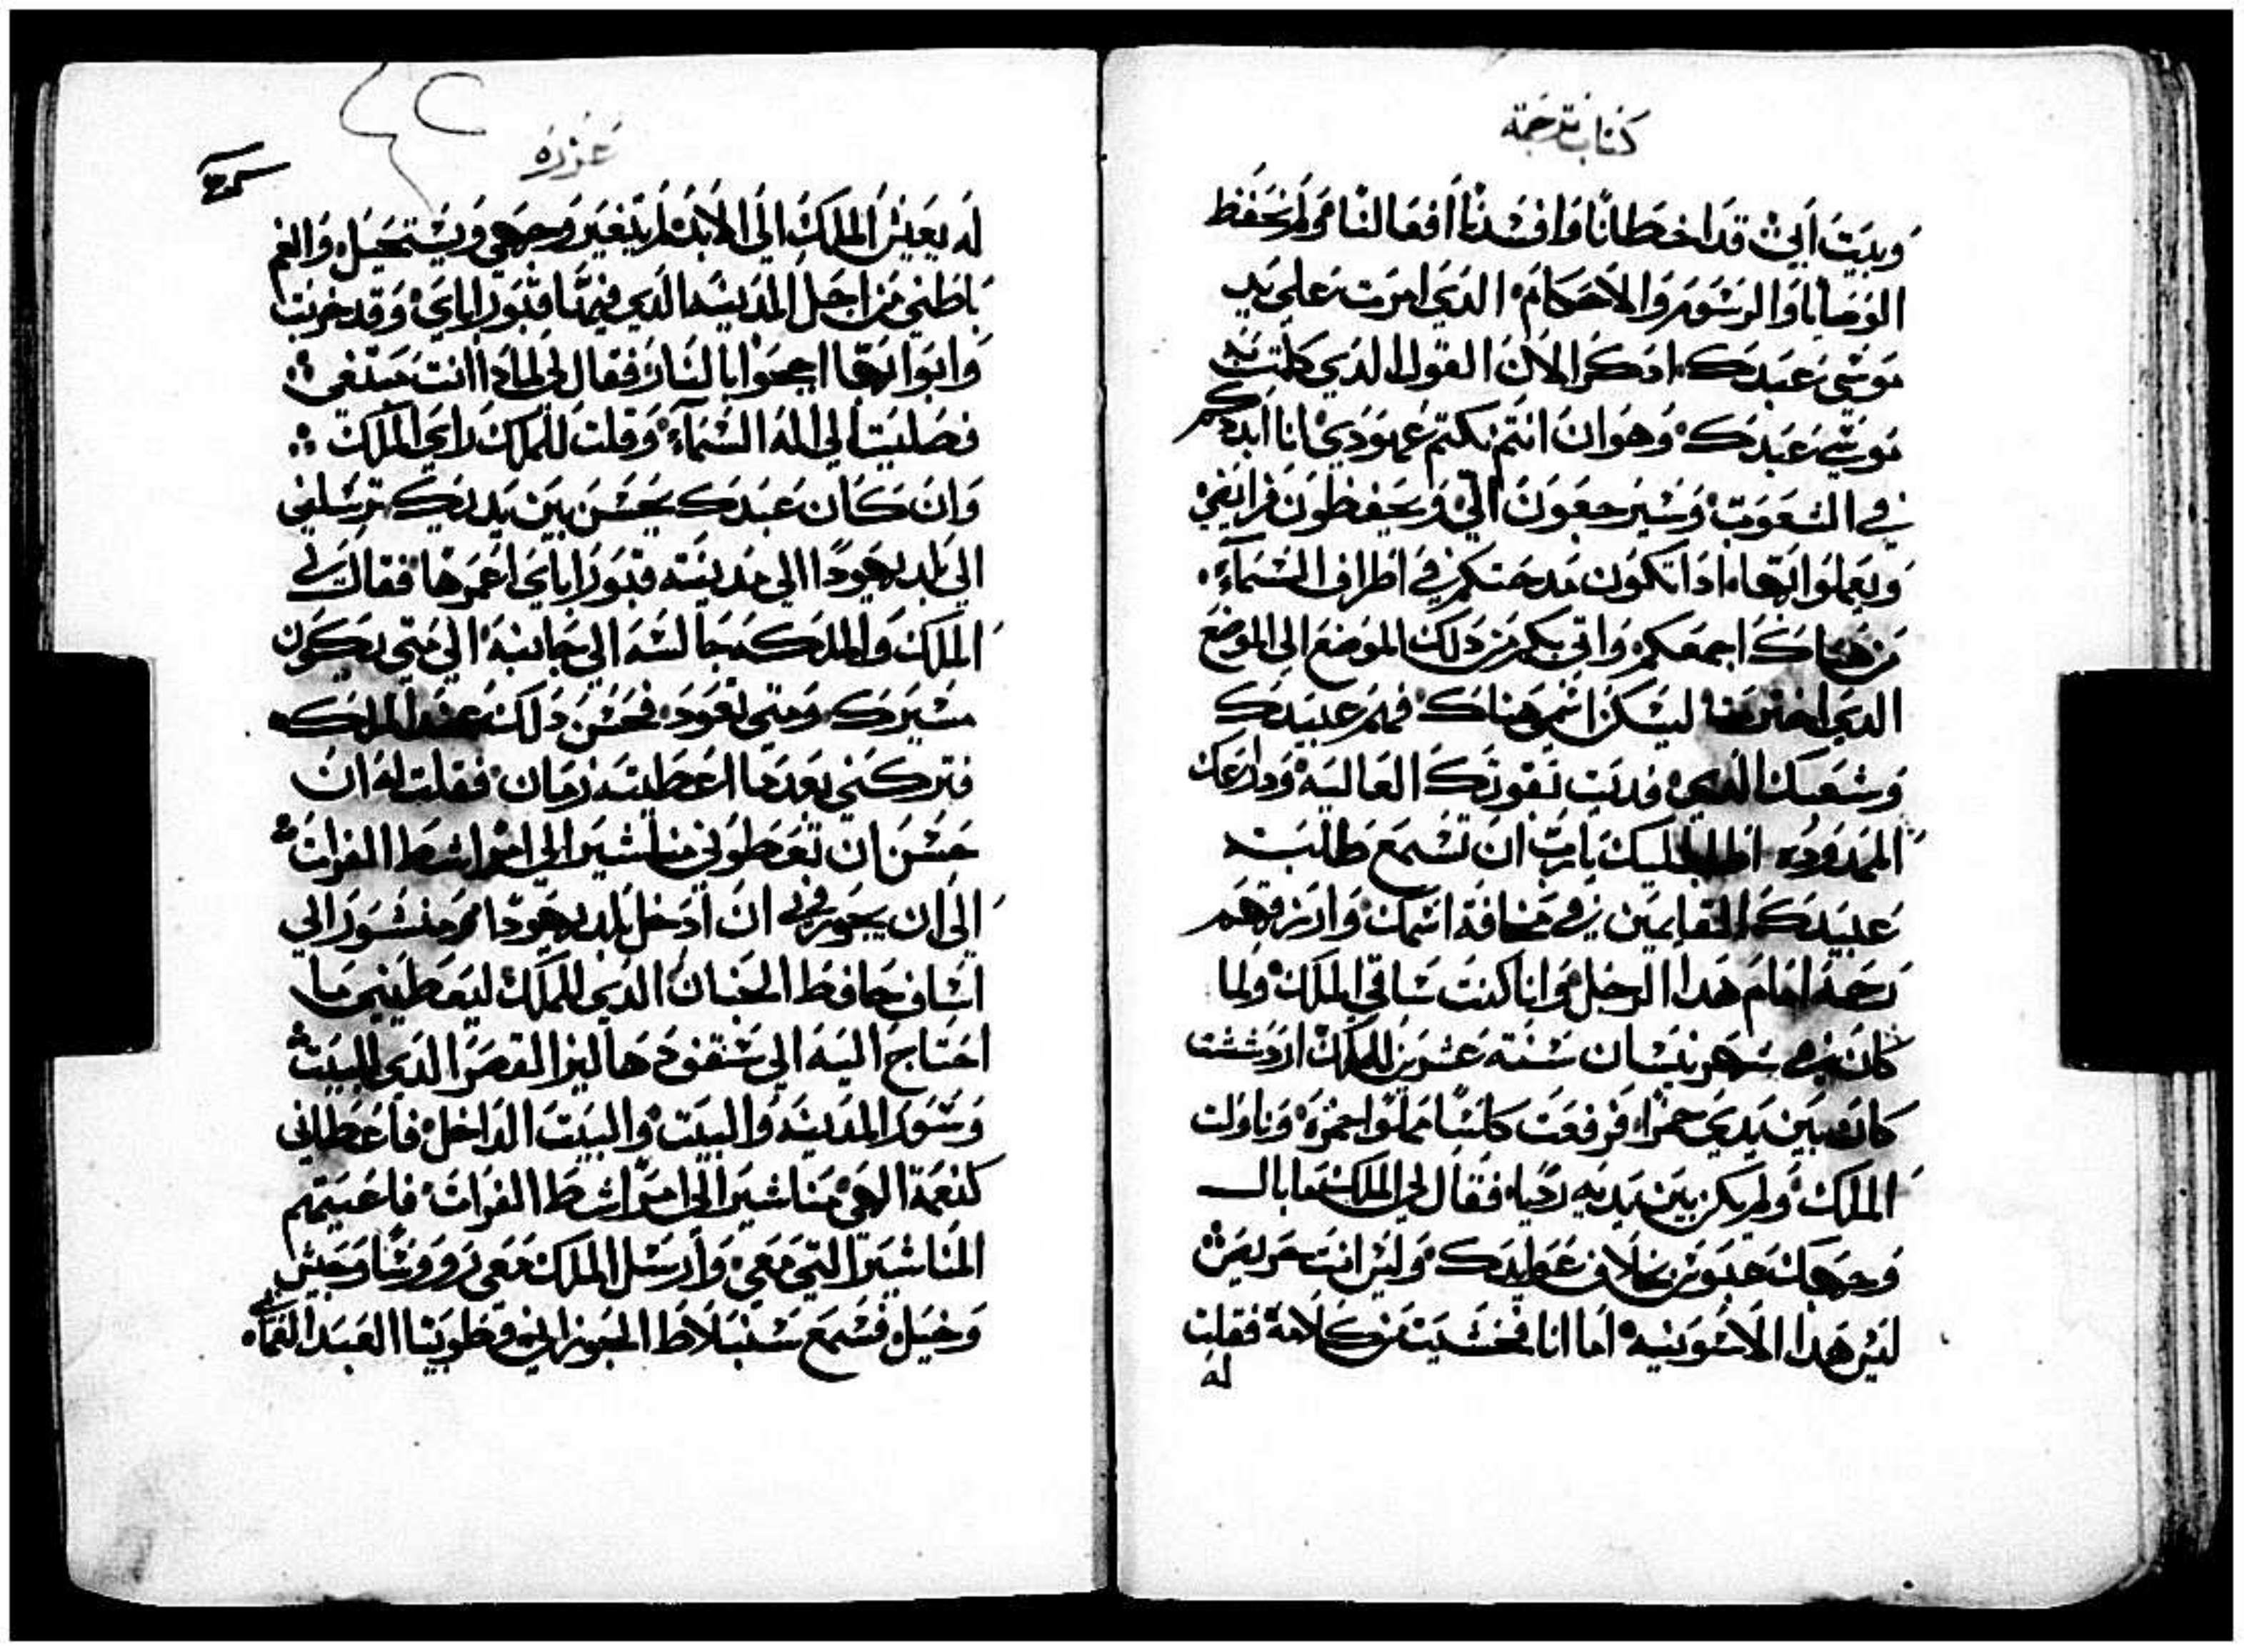 كتاب ترجمة
وبيت ابي قد اخطانا وافسدنا افعالنا ولم نحفظ
الوصايا والرسوم والاحكام الدي امرت على يد
موسى عبدك ادكر الان القول الدي كلمت به
موسى عبدك وهو ان انتم نكتم عهودي انا ابددكم
في الشعوب وسيرجعون الي ويحفظون فرايضي
ويعملوا بها ادا تكون مدحتكم في اطراف السماء
من هناك اجمعكم واتي بكم من دلك الموضع الى الموضع
الدي اخترته ليسكن اسمي هناك فهم عبيدك
وشعبك الدي فديت بقوتك العالية ودراعك
الممدوده اطلب اليك يا رب ان تسمع طلبت
عبيدك القايمين في مخافة اسمك وارزقهم
رحمة امام هدا الرجل وانا كنت ساقي الملك ولما
كان في شهر نيسان سنة عشرين للملك اردششت
كان بين يدي خمرا فرفعت كاسا مملوا خمرة وناولت
الملك ولم يكن بين يديه رديا فقال لي الملك ما بال
وجهك عبوس بخلاف عوايدك وليس انت مريض
ليس هدا الا سونيه اما انا فخشيت من كلامه فقلت
له
عزره
له يعيش الملك الى الابد لم يتغير وجهي ويستحيل وانغم
باطني من اجل المدينة الدي فيها قبور اباي وقد خربت
وابوابها احرقوا بالنار فقال لي لمادا انت مبتغي
فصليت الى اله السماء وقلت للملك راي الملك
وان كان عبدك يحسن بين يديك ترسلني
الى بلد يهودا الى مدينة قبور اباي اعمرها فقال لي
الملك والملكه جالسه الى جانبه الى متى يكون
مسيرك ومتى تعود فحسن دلك عند الملك
فتركني بعدما اعطيته زمان فقلت له ان
حسن ان تعطوني مناشير الى امرا شط الفرات
الى ان يجوزوني ان ادخل بلد يهودا ومنشور الى
اساف حافظ الجنان الدي للملك ليعطيني ما
احتاج اليه الى سقوف دهاليز القصر الدي للبيت
وسور المدينة والبيت والبيت الداخل فاعطاني
كنعمة الهي مناشير الى امرا شط الفرات فاعيتهم
المناشير التي معي وارسل الملك معي روسا وجيش
وخيل فسمع سنبلاط الجوزاني وطوبيا العبد العماني